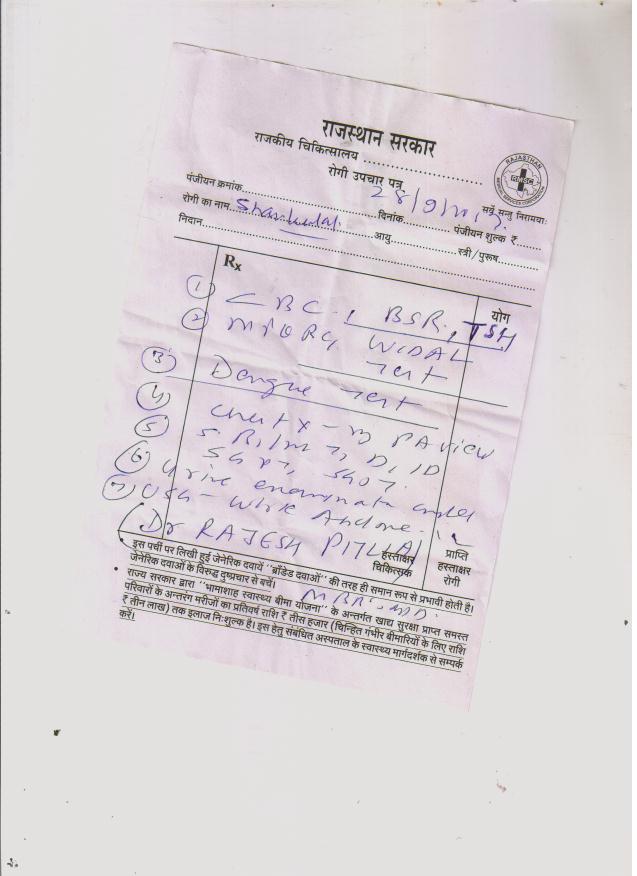 राजस्थान सरकार
राजकीय चिकित्सालय
रोगी उपचार पत्र
RAJASTHAN
सर्वे सन्तु निरामयाः
पंजीयन क्रमांक
28/9/
रोगी का नाम दिनांक पंजीयन शुल्क ₹
निदान आयु स्त्री/पुरूष
Rx योग
① CBC, BSR, TSH
② WIDAL
Test
③ Dengue Test
④ Chest X- PA view
⑤ S. Bil T, D, ID
SGPT, SGOT
⑥ Urine
⑦ USG - Whole Abdome
(Dr RAJESH
हस्ताक्षर चिकित्सक
प्राप्ति हस्ताक्षर रोगी
• इस पर्ची पर लिखी हुई जेनेरिक दवायें "ब्राँडेड दवाओं" की तरह ही समान रूप से प्रभावी होती है।
जेनेरिक दवाओं के विरुद्ध दुष्प्रचार से बचें।
MBBS. MD.
• राज्य सरकार द्वारा "भामाशाह स्वास्थ्य बीमा योजना" के अन्तर्गत खाद्य सुरक्षा प्राप्त समस्त
परिवारों के अन्तरंग मरीजों का प्रतिवर्ष राशि ₹ तीस हजार (चिन्हित गंभीर बीमारियों के लिए राशि
₹ तीन लाख) तक इलाज निःशुल्क है। इस हेतु संबंधित अस्पताल के स्वास्थ्य मार्गदर्शक से सम्पर्क
करें।